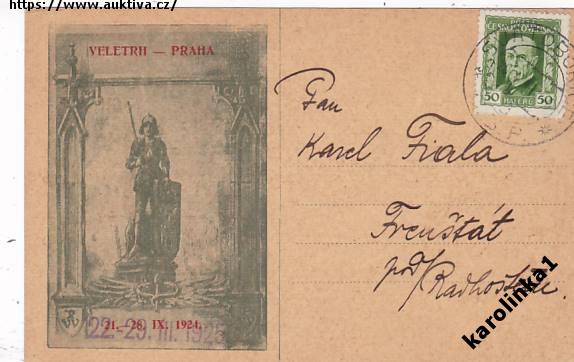 https://www.auktiva.cz/
VELETRH — PRAHA
50 HALÉŘŮ 50
Pan
Karel Fiala
Frenštát
pod/Radhoštěm.
21.—28. IX. 1924.
22.-29. III. 1925
karolinka1